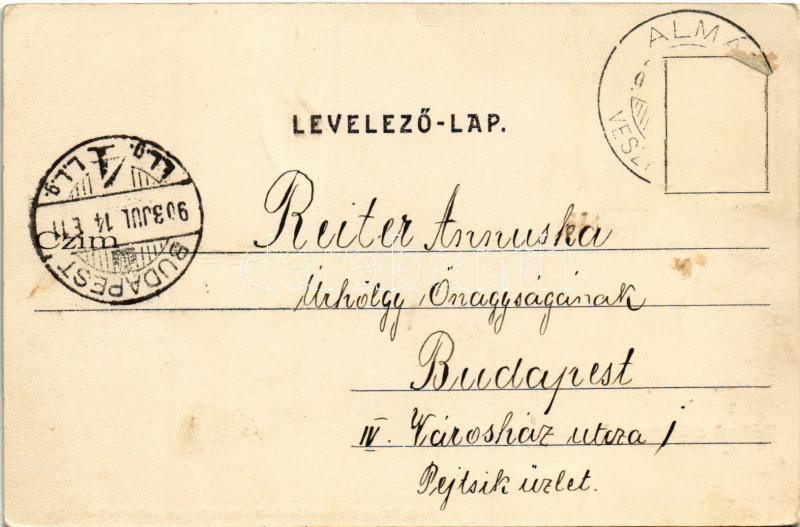 ALMÁ
VESZ
LEVELEZŐ-LAP.
BUDAPEST
903 JUL 14
Czim
Reiter Annuska
Úrhölgy Őnagyságának
Budapest
IV. Városház utcza 1
Pejtsik üzlet.
darabanth